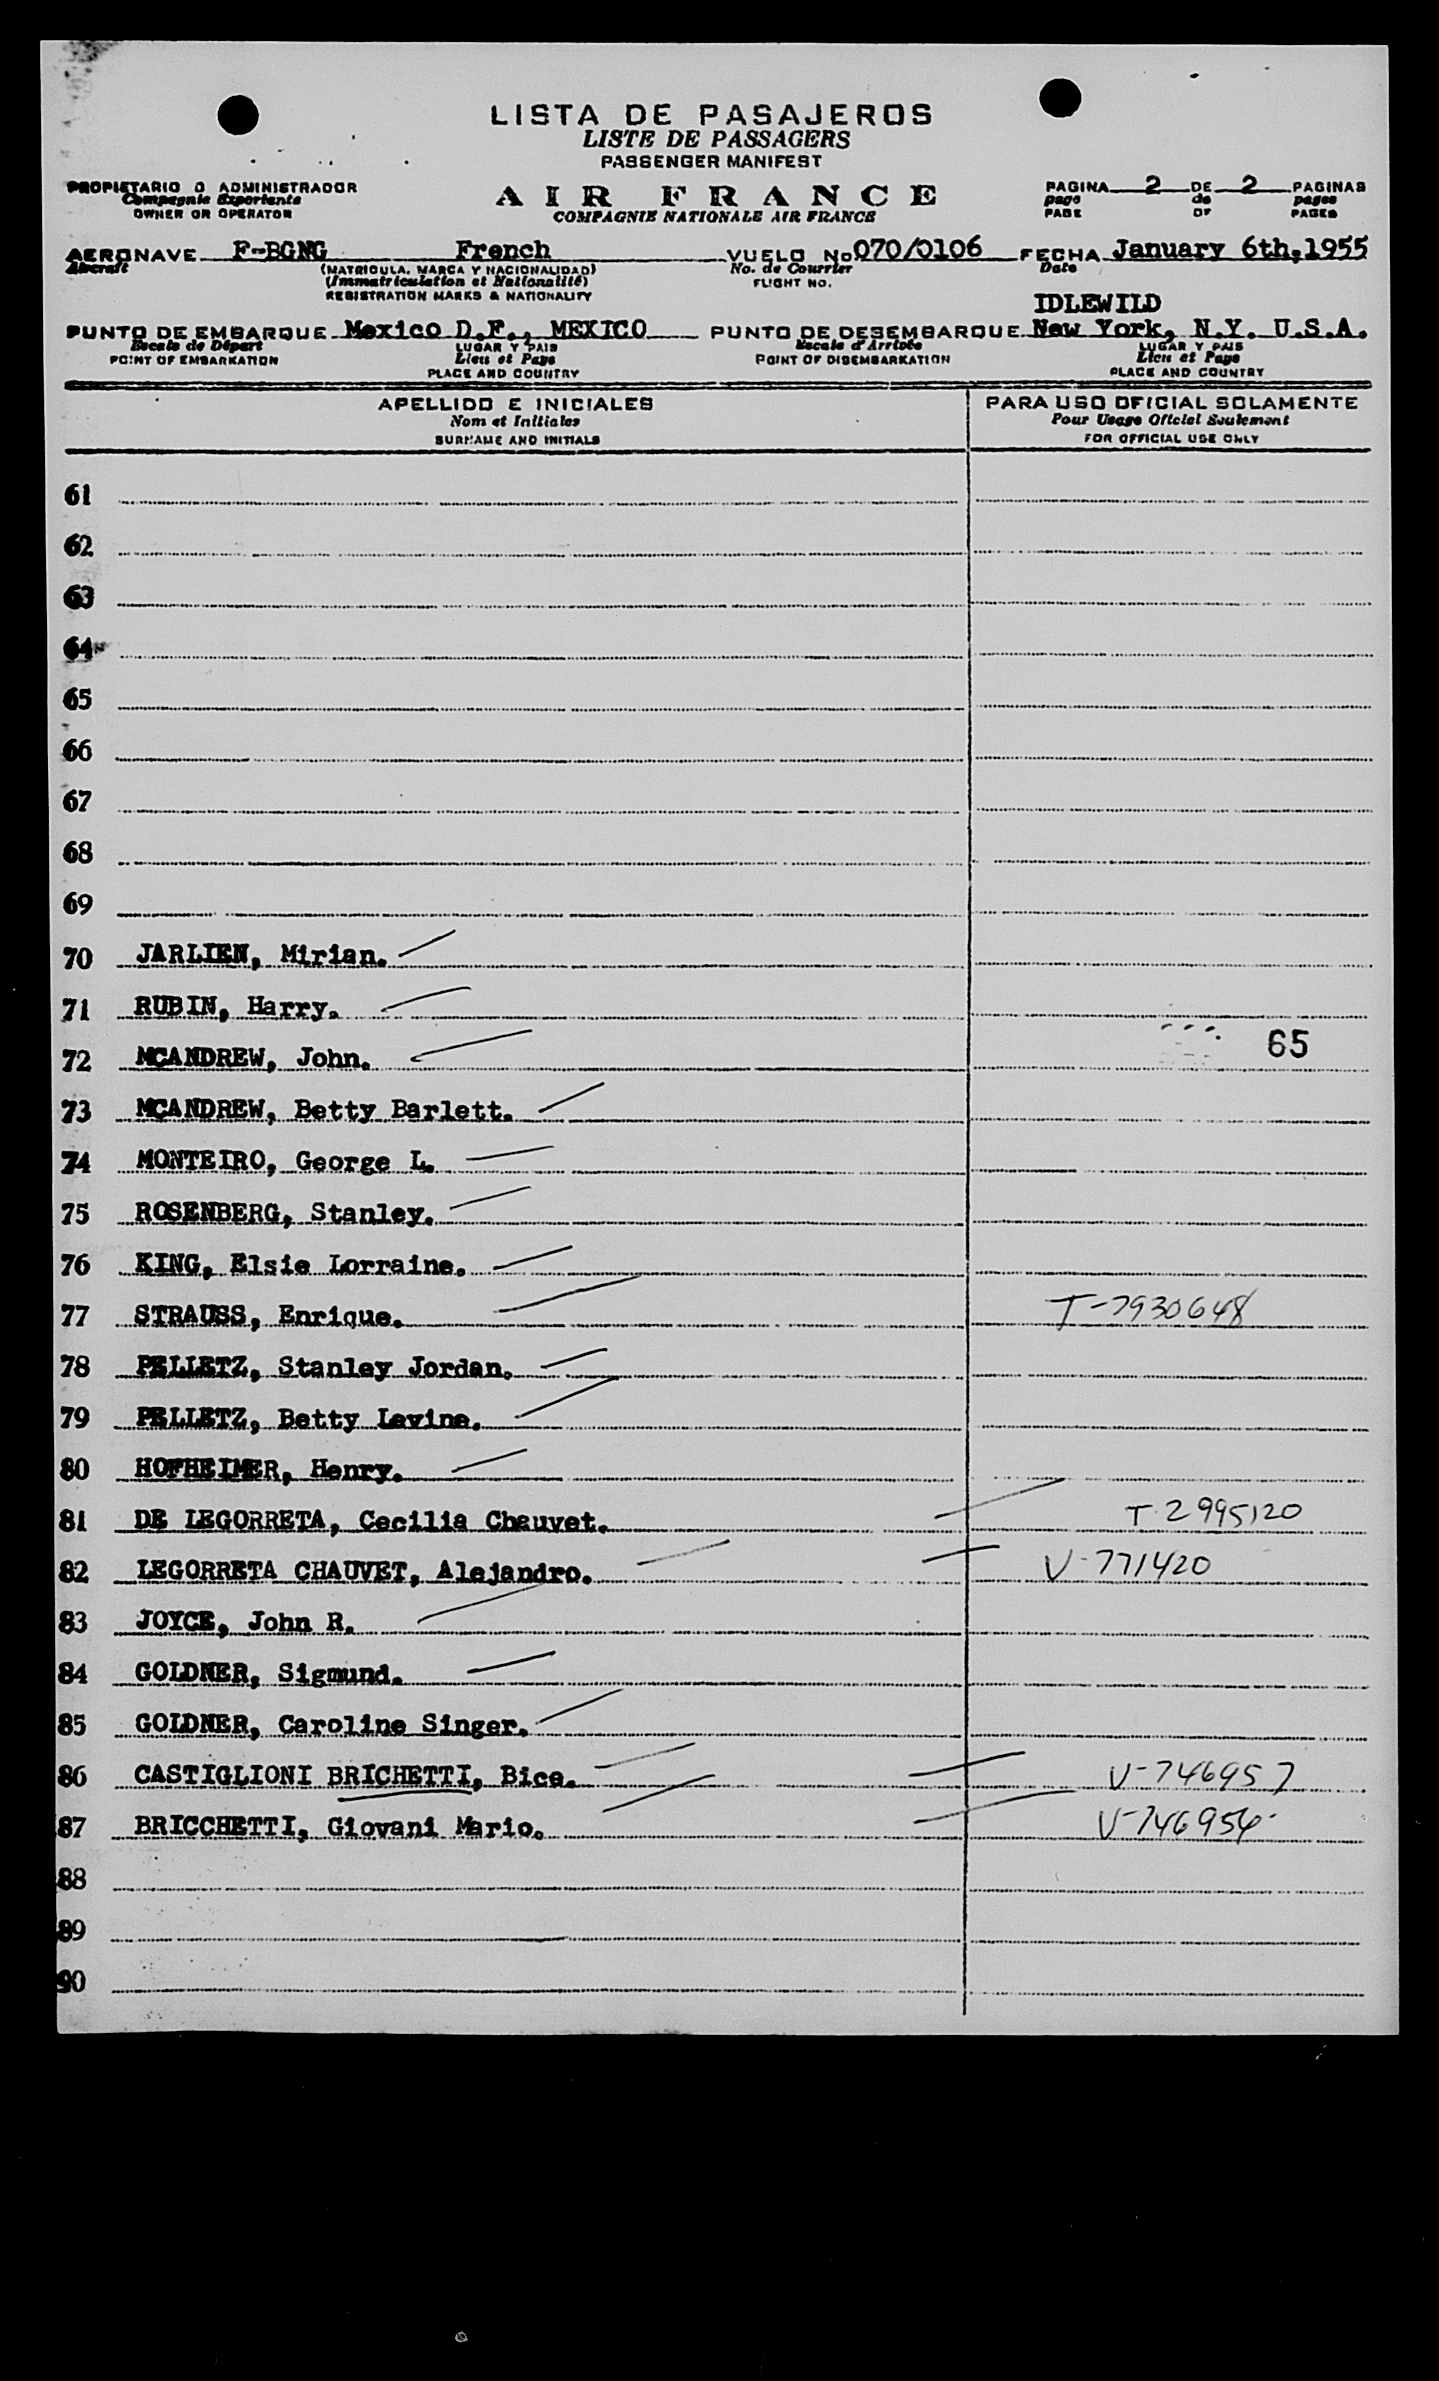 LISTA DE PASAJEROS
LISTE DE PASSAGERS
PASSENGER MANIFEST
PROPIETARIO O ADMINISTRADOR
Compagnie Exportante
OWNER OR OPERATOR
AIR FRANCE
COMPAGNIE NATIONALE AIR FRANCE
PAGINA 2 DE 2 PAGINAS
page de pages
PAGE OF PAGES
AERONAVE F-BGNG French VUELO No 070/0106 FECHA January 6th,1955
Aircraft (MATRICULA, MARCA Y NACIONALIDAD) No. de Courrier Date
(Immatriculation et Nationalité) FLIGHT NO.
REGISTRATION MARKS & NATIONALITY
IDLEWILD
PUNTO DE EMBARQUE Mexico D.F., MEXICO PUNTO DE DESEMBARQUE New York, N.Y. U.S.A.
Escale de Départ LUGAR Y PAIS Escale d'Arrivée LUGAR Y PAIS
POINT OF EMBARKATION Lieu et Pays POINT OF DISEMBARKATION Lieu et Pays
PLACE AND COUNTRY PLACE AND COUNTRY
APELLIDO E INICIALES PARA USO OFICIAL SOLAMENTE
Nom et Initiales Pour Usage Officiel Seulement
SURNAME AND INITIALS FOR OFFICIAL USE ONLY
61
62
63
64
65
66
67
68
69
70 JARLIEN, Mirian.
71 RUBIN, Harry.
72 MCANDREW, John. 65
73 MCANDREW, Betty Barlett.
74 MONTEIRO, George L.
75 ROSENBERG, Stanley.
76 KING, Elsie Lorraine.
77 STRAUSS, Enrique. T-7930648
78 PELLETZ, Stanley Jordan.
79 PELLETZ, Betty Levine.
80 HOFHEIMER, Henry.
81 DE LEGORRETA, Cecilia Chauvet. T-2995120
82 LEGORRETA CHAUVET, Alejandro. V-771420
83 JOYCE, John R.
84 GOLDNER, Sigmund.
85 GOLDNER, Caroline Singer.
86 CASTIGLIONI BRICHETTI, Bice. V-746957
87 BRICCHETTI, Giovani Mario. V-746956
88
89
90